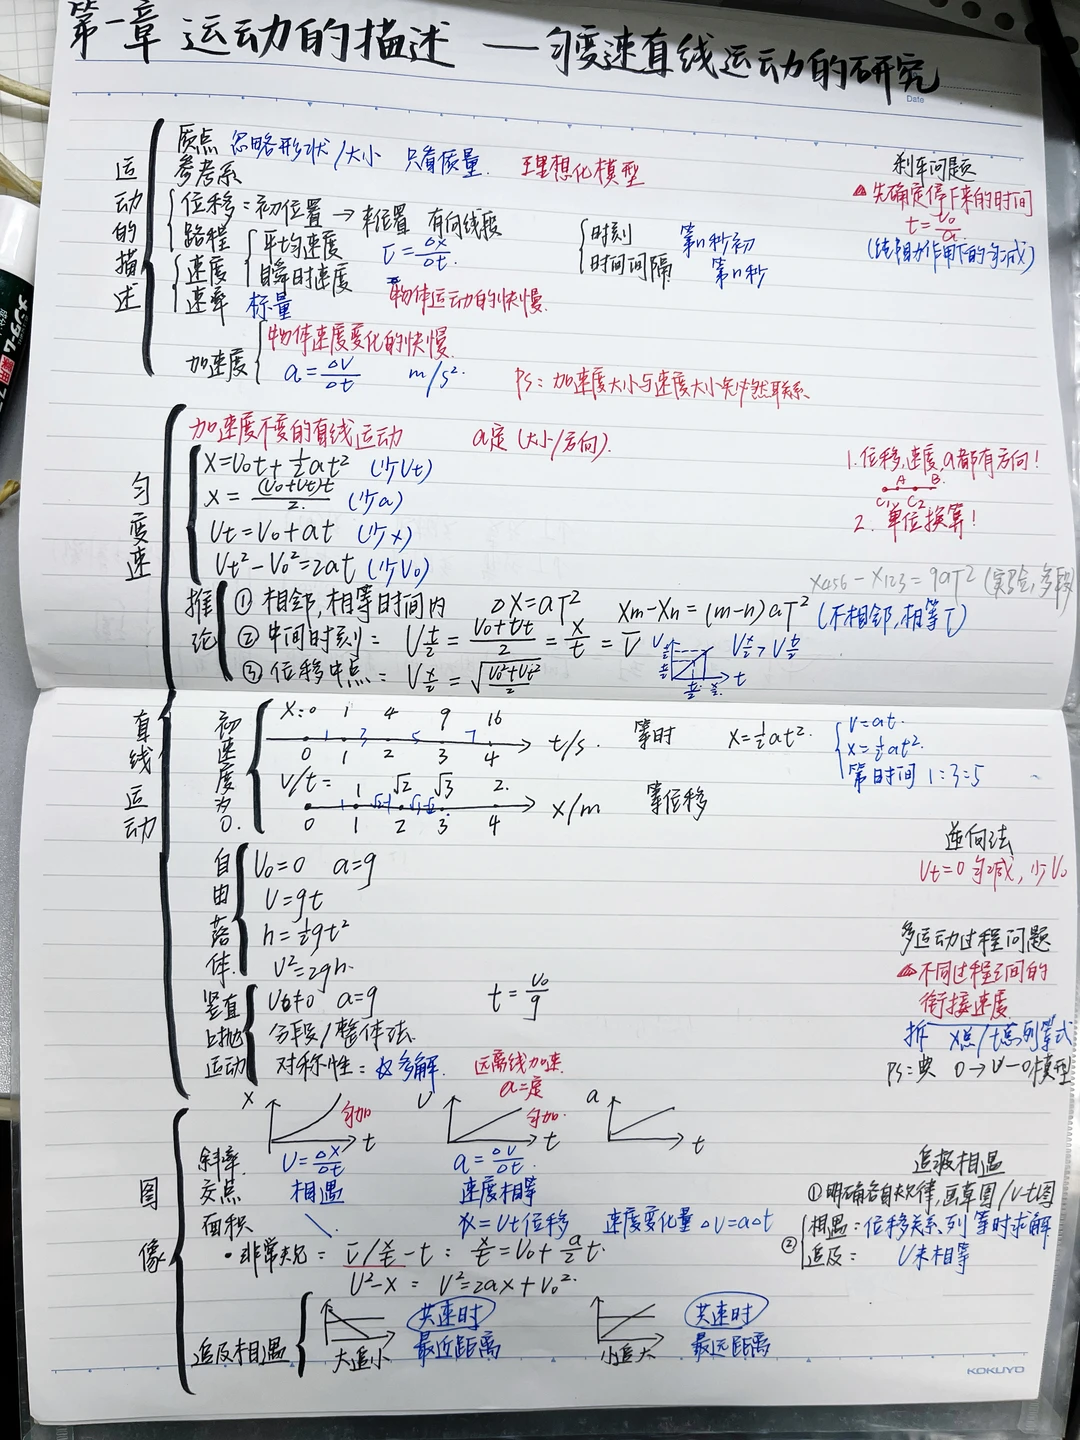 第一章 运动的描述 — 匀变速直线运动的研究
Date
运动的描述
质点 忽略形状/大小 只有质量. 理想化模型
参考系
位移=初位置→末位置 有向线段
路程
速度
平均速度 v̅=△x/△t.
瞬时速度
速率 标量
物体运动的快慢.
时刻 第n秒初
时间间隔 第n秒
加速度
物体速度变化的快慢.
a=△V/△t m/s².
Ps: 加速度大小与速度大小无必然联系
刹车问题
先确定停下来的时间
t=V₀/a
匀变速直线运动
加速度不变的直线运动 a定 (大小/方向).
X=V₀t+½at² (少Vt)
X=(V₀+Vt)t/2. (少a)
Vt=V₀+at (少x)
Vt²-V₀²=2at (少V₀)
1. 位移,速度,a都有方向!
A B.
C₁ C₂
2. 单位换算!
X456-X123=9aT² (实验,多段)
推论
① 相邻,相等时间内 △X=aT² Xm-Xn=(m-n)aT² (不相邻,相等T)
② 中间时刻: V t/2=(V₀+Vt)/2=x/t=v̅
③ 位移中点: V x/2=√((V₀²+Vt²)/2)
V x/2>V t/2
t
初速度为0.
X:0 1 4 9 16
1 3 5 7
0 1 2 3 4 t/s.
等时 X=½at².
V=at.
X=½at².
等时间 1:3:5
V/t= 1 √2 √3 2.
0 1 2 3 4 X/m
等位移
逆向法
Vt=0 匀减, 少V₀
自由落体.
V₀=0 a=g
V=gt
h=½gt²
V²=2gh.
竖直上抛运动
V₀≠0 a=g t=V₀/g
分段/整体法.
对称性: 必多解.
多运动过程问题
不同过程之间的
衔接速度.
拆 X总/t总列等式
Ps: 典 0→V-0模型
图像
x 匀加 t
v 匀加. t
a t
斜率 V=△x/△t a=△V/△t.
交点 相遇 速度相等
面积 \ x=Vt位移 速度变化量△V=a△t
·非常规: v̅/x/t-t: x/t=V₀+a/2 t.
V²-X: V²=2ax+V₀².
追及相遇
①明确各自规律,画草图/v-t图
②
相遇: 位移关系列等时求解
追及: V末相等
追及相遇
大追小 共速时 最近距离
小追大 共速时 最远距离
KOKUYO